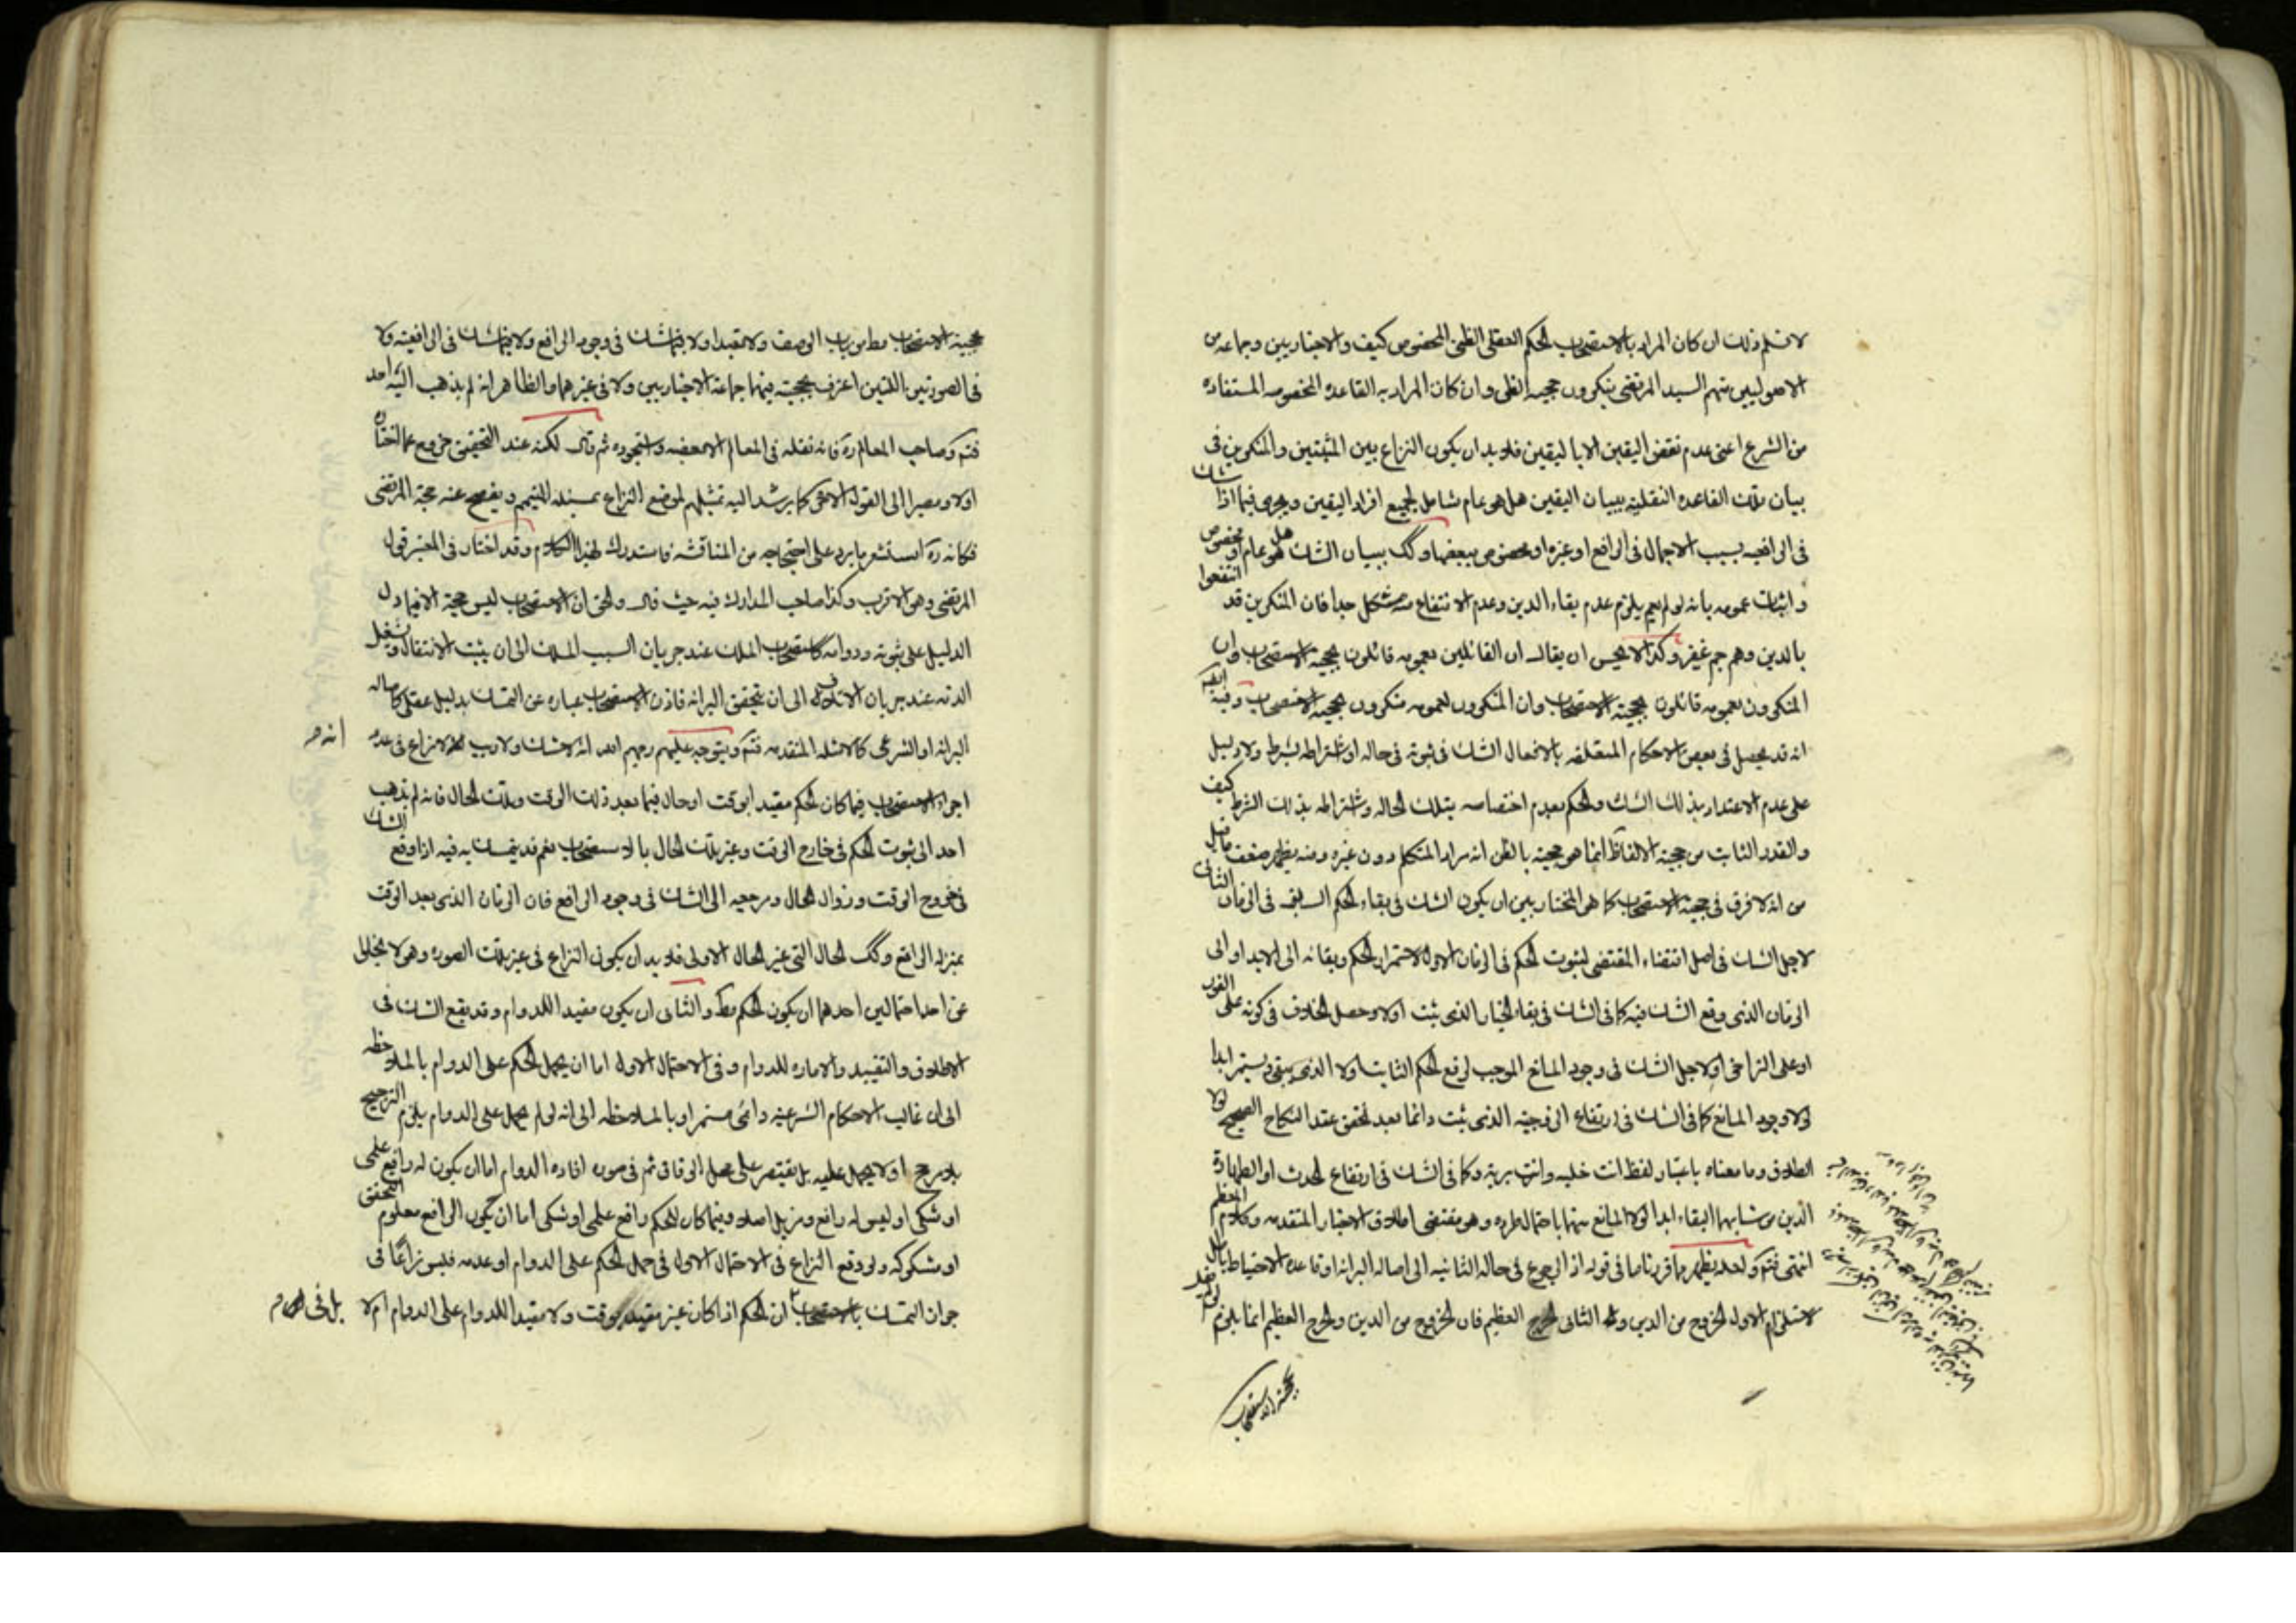 لا نسلم ذلك ان كان المراد بالاستصحاب الحكم العقلى الظنى المخصوص كيف والاخباريين وجماعه من
الاصوليين منهم السيد المرتضى ينكرون حجيه الظن وان كان المراد به القاعده المخصوصه المستفاده
من الشرع اعنى عدم نقض اليقين الا باليقين فلا بد ان يكون النزاع بين المثبتين والمنكرين فى
بيان تلك القاعده النقليه ببيان اليقين هل هو عام شامل لجميع افراد اليقين ويجرى فيما اذا شك
فى الرافعيه بسبب الاجمال فى الرافع او غيره او مخصوص ببعضها وكك ببيان الشك هل هو عام او مخصوص
واثبات عمومه بانه لو لم يعم يلزم عدم بقاء الدين وعدم الانتفاع منه مشكل جدا فان المنكرين قد انتفعوا
بالدين وهم جم غفير وكذا لا يحسن ان يقال ان القائلين بعمومه قائلون بحجيه الاستصحاب وان
المنكرون بعمومه قائلون بحجيه الاستصحاب وان المنكرون لعمومه منكرون لحجيه الاستصحاب وفيه
انه قد يحصل فى بعض الاحكام المتعلقه بالافعال الشك فى ثبوته فى حاله او اشتراطه بشرط ولا دليل
على عدم الاعتداد بذلك الشك والحكم بعدم اختصاصه بتلك الحاله واشتراطه بذلك الشرط كيف
والقدر الثابت من حجيه الالفاظ انما هو حجيه بالظن انه مراد المتكلم دون غيره ومنه يظهر ضعف ما قيل
من انه لا فرق فى حجيه الاستصحاب كما هو المختار بين ان يكون الشك فى بقاء الحكم السابق فى الزمان الثانى
لاجل الشك فى اصل اقتضاء المقتضى لثبوت الحكم فى الزمان الاول لاستمرار الحكم وبقائه الى الابد او الى
الزمان الذى وقع الشك فيه كما فى الشك فى بقاء الخيار الذى ثبت اولا وحصل الخلاف فى كونه على الفور
او على التراخى او لاجل الشك فى وجود المانع الموجب لرفع الحكم الثابت اولا الذى يبقى ويستمر ابدا
لولا وجود المانع كما فى الشك فى ارتفاع الزوجيه الذى ثبت دائما بعد تحقق عقد النكاح الصحيح لولا
الطلاق وما معناه باعتبار لفظ انت خليه وانت بريه وكما فى الشك فى ارتفاع الحدث او الطهارة
الذين من شانهما البقاء ابدا لولا المانع منها باحتمال طروه وهو مقتضى اطلاق الاخبار المتقدمه وكلام المعظم
انتهى فتم ولعله يظهر مما قررنا ما فى قوله اذ الرجوع فى حاله الثانيه الى اصاله البرائه او قاعده الاحتياط باطل
لاستلزام الاول الخروج من الدين والثانى الحرج العظيم فان الخروج من الدين والحرج العظيم انما يلزم
حجيه الاستصحاب
حجية الاستصحاب مط من باب الوصف ولا مقيدا ولا فيما شك فى وجود الرافع ولا فيما شك فى الرافعيه ولا
فى الصورتين اللتين اعترف بحجيته فيهما جماعه الاخباريين ولا فى غيرهما والظاهر انه لم يذهب اليه احد
فتم وصاحب المعالم ره فانه نقله فى المعالم الا بعضه واستجوده ثم قال لكنه عند التحقيق رجوع عما اختاره
اولا ومصيرا الى القول الاخر كما يرشد اليه تمثيلهم لموضع النزاع بمسئله التيمم ويفصح عنه حجة المرتضى
فكانه ره استشعر ما يرد على احتجاجه من المناقشه فاستدرك بهذا الكلام وقد اختار فى المعتبر قول
المرتضى وهو الاقرب وكذا صاحب المدارك فيه حيث قال والحق ان الاستصحاب ليس حجة الا فيما دل
الدليل على ثبوته ودوامه كاستصحاب الملك عند جريان السبب المملك الى ان يثبت الانتقال وشغل
الذمه عند جريان الاتلاف الى ان يتحقق البرائه فاذن الاستصحاب عباره عن التمسك بدليل عقلى كاصاله
البرائه او الشرعى كالامثله المتقدمه فتم ويتوجه عليهم رحمهم الله انه لا شك ولا ريب انه لا نزاع فى عدم
انه م
اجراء الاستصحاب فيما كان الحكم مقيدا بوقت او حال فيما بعد ذلك الوقت وتلك الحال فانه لم يذهب
احد الى ثبوت الحكم فى خارج الوقت وغير تلك الحال بالاستصحاب نعم قد يتمسك به فيه اذا وقع الشك
فى خروج الوقت وزوال الحال ومرجعه الى الشك فى وجود الرافع فان الزمان الذى بعد الوقت
بمنزله الرافع وكك الحال التى غير الحال الاولى فلا بد ان يكون النزاع فى غير تلك الصوره وهو لا يخلو
عن احد احتمالين احدهما ان يكون الحكم مط والثانى ان يكون مقيدا للدوام وقد يقع الشك فى
الاطلاق والتقييد والاماره للدوام وفى الاحتمال الاول اما ان يحمل الحكم على الدوام بالملاحظه
الى ان غالب الاحكام الشرعيه دائمى مستمر او بالملاحظه الى انه لو لم يحمل على الدوام يلزم الترجيح
بلا مرجح او لا يحمل عليه بل يقتصر على محل الوفاق ثم فى صوره افاده الدوام اما ان يكون له رافع علمى
او شكى او ليس له رافع ومزيل اصلا وفيما كان للحكم رافع علمى او شكى اما ان يكون الرافع معلوم التحقق
او مشكوكه ولو وقع النزاع فى الاحتمال الاول فى حمل الحكم على الدوام او عدمه فليس نزاعا فى
جواز التمسك بالاستصحاب ان الحكم اذا كان غير مقيد بوقت ولا مقيدا للدوام على الدوام ام لا